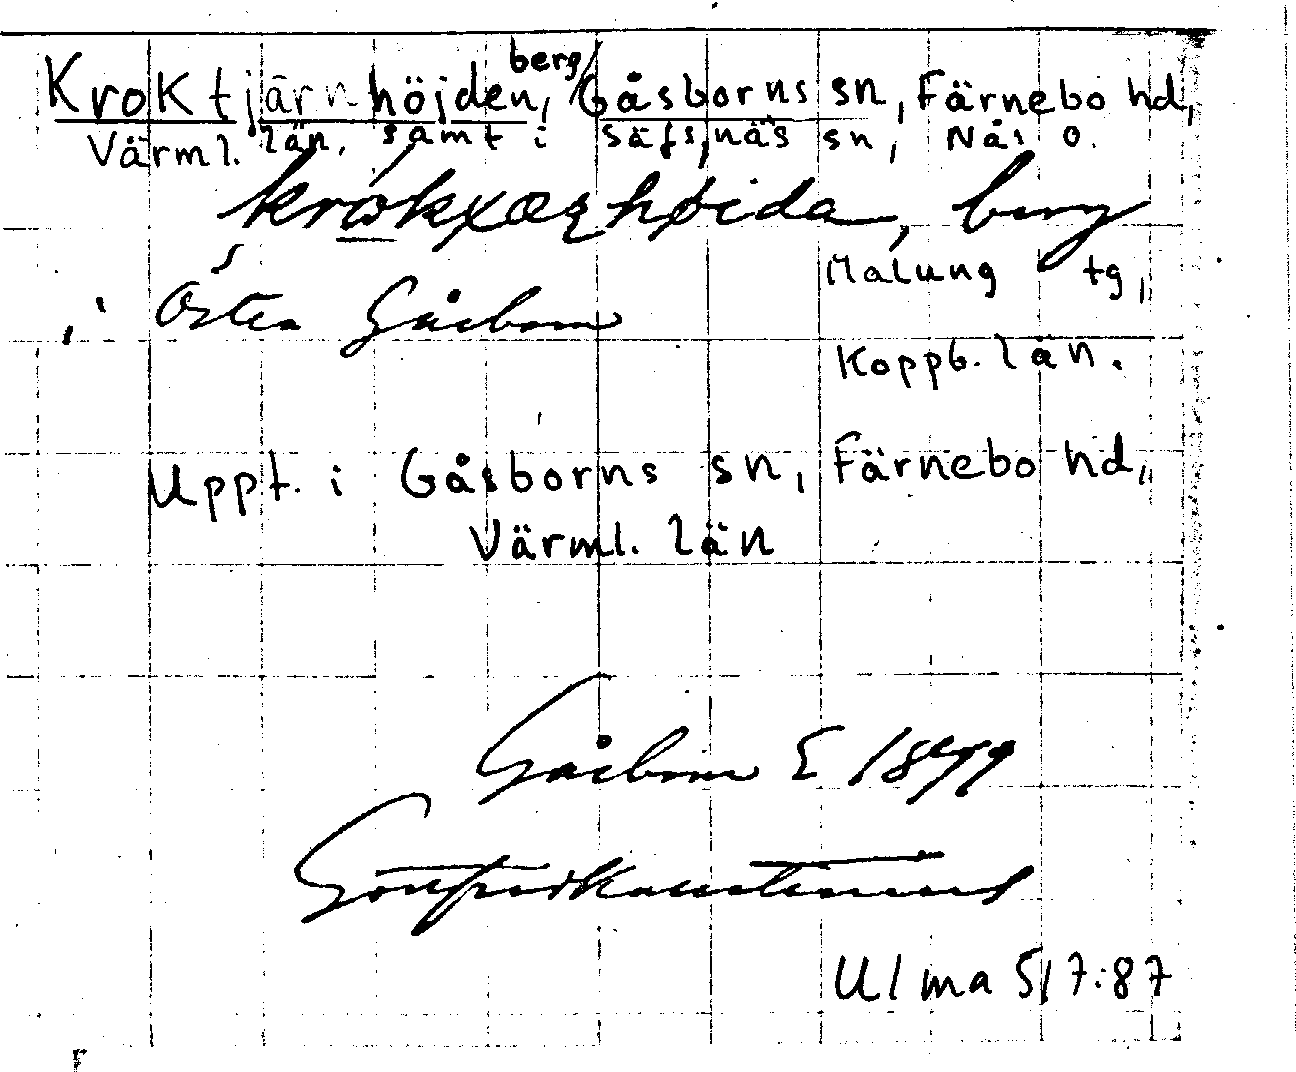 Kroktjärnhöjden, berg, Gåsborns sn, Färnebo hd,
Värml. län, samt i Säfsnäs sn, Nås o.
Malung tg,
krokxæʀhøida, berg
i Östra Gåsborn
Koppb. län.
Uppt. i Gåsborns sn, Färnebo hd,
Värml. län
Gåsborn S 1899
Ulma 517:87